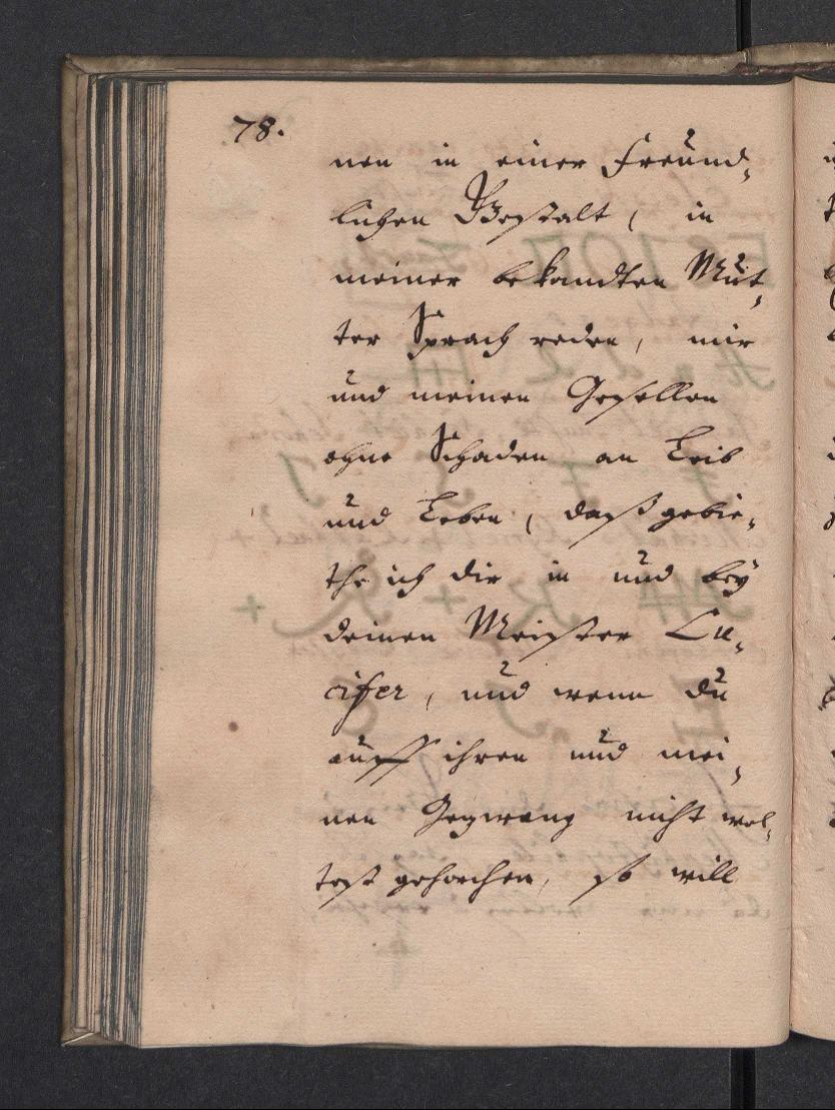 78.
nen in einer Freund,
lichen Gestalt, in
meiner bekandten Mut,
ter Sprach reden, mir
und meinen Gesellen
ohne Schaden an Leib
und Leben, daß gebie,
the ich dir in und beÿ
deinen Meister Lu,
cifer, und wenn du
auff ihren und mei,
nen Gezwang nicht wol,
test gehorchen, so will